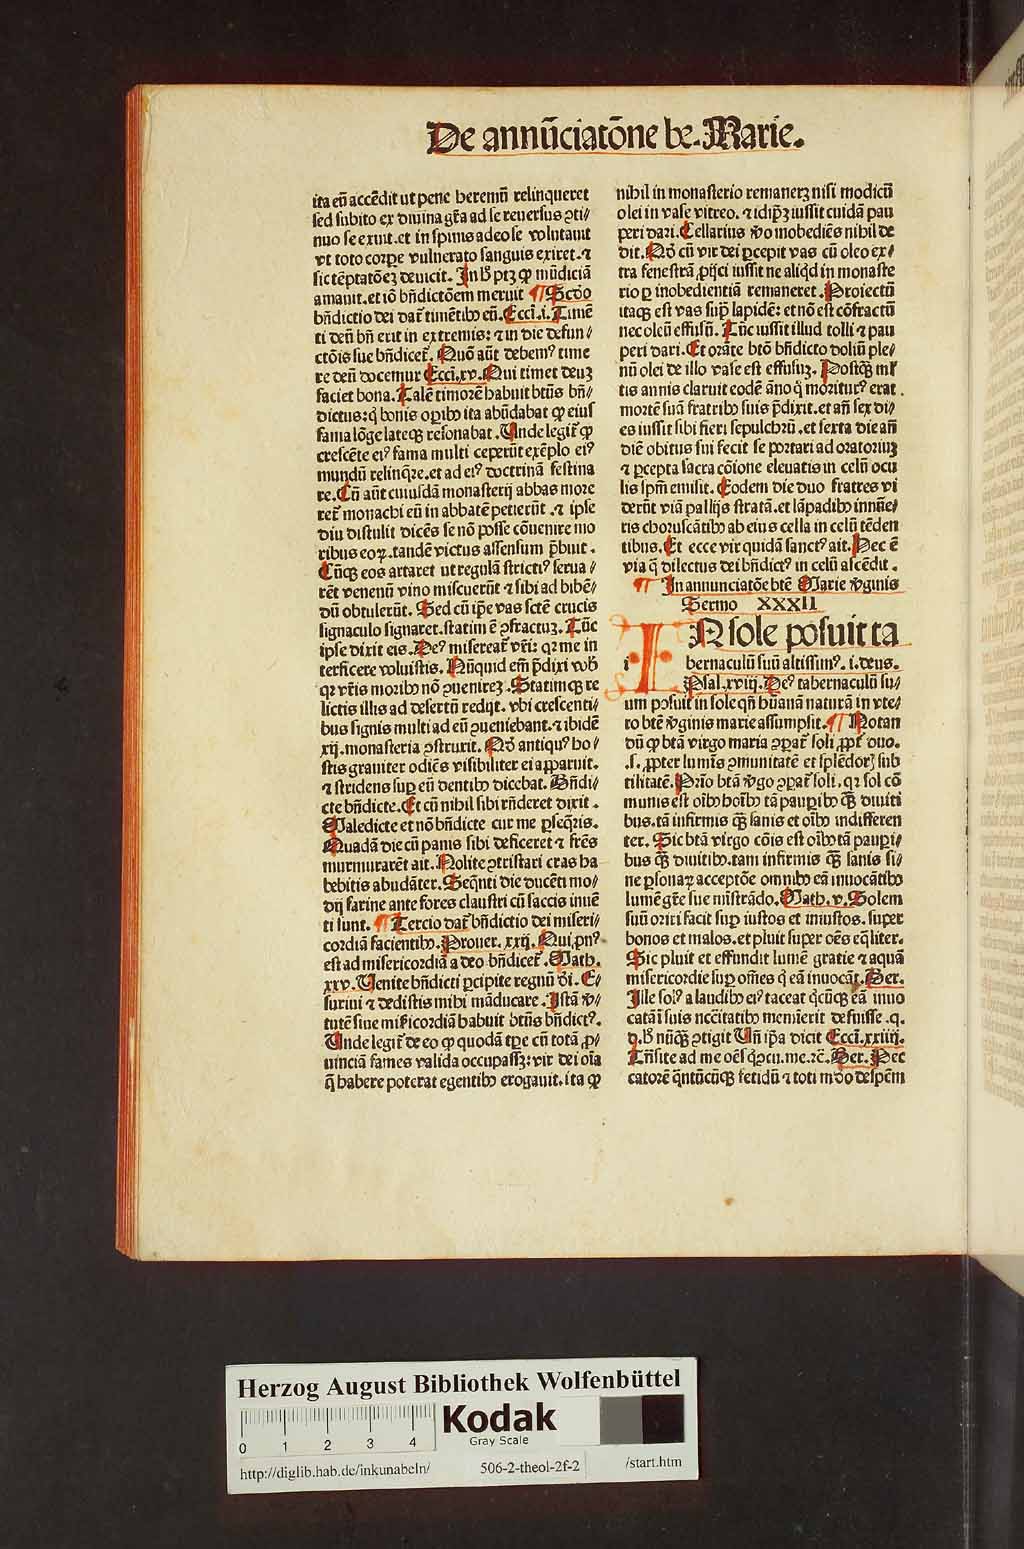 De annūciatōne be. Marie.
ita eū accēdit ut pene heremū relinqueret
sed subito ex diuina gr̄a ad se reuersus ꝯti⸗
nuo se exuit. et in spinis adeo se volutauit
vt toto corpe vulnerato sanguis exiret. ⁊
sic tēptatōeꝫ deuicit. In hͦ ptꝫ ꝙ mūdiciā
amauit. et iō bn̄dictōem meruit ¶ Scd̄o
bn̄dictio dei dat᷑ timētibꝰ eū. Ecci. i. Timē
ti deū bn̄ erit in extremis: ⁊ in die defun⸗
ctōis sue bn̄dicet᷑. Quō aūt debemꝰ time
re deū docemur Ecci. xv. Qui timet deuꝫ
faciet bona. Talē timorē habuit btūs bn̄⸗
dictus: ꝗ bonis oꝑibꝰ ita abūdabat ꝙ eius
fama lōge lateqꝫ resonabat. Unde legit᷑ ꝙ
crescēte eiꝰ fama multi ceperūt exēplo eiꝰ
mundū relinq̄re. et ad eiꝰ doctrinā festina
re. Cū aūt cuiusdā monasterij abbas more
ret᷑ monachi eū in abbatē petierūt. ⁊ ipse
diu distulit dicēs se nō posse cōuenire mo
ribus eoꝝ. tandē victus assensum p̄buit.
Cūqꝫ eos artaret ut regulā strictiꝰ serua⸗
rēt venenū vino miscuerūt ⁊ sibi ad bibē⸗
dū obtulerūt. Sed cū ip̄e vas sctē crucis
signaculo signaret. statim ē ꝯfractuꝫ. Tūc
ipse dixit eis. Deꝰ misereat᷑ vr̄i: qꝛ me in
terficere voluistis. Nūquid em̄ p̄dixi vobꝭ
qꝛ vr̄is moribꝰ nō ꝯuenireꝫ. Statimqꝫ re
lictis illis ad desertū redijt. vbi crescenti⸗
bus signis multi ad eū ꝯueniebant. ⁊ ibidē
xij. monasteria ꝯstruxit. Nō antiquꝰ ho⸗
stis grauiter odiēs visibiliter ei apparuit.
⁊ stridens suꝑ eū dentibꝰ dicebat. Bn̄di⸗
cte bn̄dicte. Et cū nihil sibi rn̄deret dixit.
Maledicte et nō bn̄dicte cur me ꝑseq̄ris.
Quadā die cū panis sibi deficeret ⁊ fr̄es
murmurarēt ait. Nolite ꝯtristari cras ha
bebitis abudāter. Seq̄nti die ducēti mo⸗
dij farine ante fores claustri cū saccis inuē
ti sunt. ¶ Tercio dat᷑ bn̄dictio dei miseri⸗
cordiā facientibꝰ. Prouer. xxij. Qui pn̄ꝰ
est ad misericordiā a deo bn̄dicet᷑. Math.
xxv. Venite bn̄dicti ꝑcipite regnū dī. E⸗
suriui ⁊ dedistis mihi māducare. Istā v̓⸗
tutē siue mi᷑icordiā habuit btūs bn̄dictꝰ.
Unde legit᷑ de eo ꝙ quodā tꝑe cū totā ꝓ⸗
uinciā fames valida occupassꝫ: vir dei oīa
q̄ habere poterat egentibꝰ erogauit. ita ꝙ
nihil in monasterio remanerꝫ nisi modicū
olei in vase vitreo. ⁊ id ip̄ꝫ iussit cuidā pau
peri dari. Cellarius v̓o inobediēs nihil de
dit. Nō cū vir dei ꝑcepit vas cū oleo ex⸗
tra fenestrā ꝓijci iussit ne aliqͥd in monaste
rio ꝑ inobedientiā remaneret. Proiectū
itaqꝫ est vas suꝑ lapidē: et nō est cōfractū
nec oleū effusū. Tūc iussit illud tolli ⁊ pau
peri dari. Et orāte btō bn̄dicto doliū ple⸗
nū olei de illo vase est effusuꝫ. Postqꝫ ml᷑
tis annis claruit eodē āno q̄ moriturꝰ erat.
mortē suā fratribꝰ suis p̄dixit. et an̄ sex di⸗
es iussit sibi fieri sepulchrū. et sexta die an̄
diē obitus sui fecit se portari ad oratoriuꝫ
⁊ ꝑcepta sacra cōione eleuatis in celū ocu
lis spm̄ emisit. Eodem die duo fratres vi
derūt viā pallijs stratā. et lāpadibꝰ innūe⸗
ris choruscātibꝰ ab eius cella in celū tēden
tibus. Et ecce vir quidā sanctꝰ ait. Hec ē
via q̄ dilectus dei bn̄dictꝰ in celū ascēdit.
¶ In annunciatōe btē Marie v̓ginis
Sermo XXXII
IN sole posuit ta
bernaculū suū altissimꝰ. i. deus.
Psal. xviij. Deꝰ tabernaculū su⸗
um posuit in sole qn̄ hūanā naturā in vte⸗
ro btē v̓ginis marie assumpsit. ¶ Notan
dū ꝙ btā virgo maria ꝯparat᷑ soli ꝓpt᷑ duo.
.s. ꝓpter lumīs ꝯmunitatē et splēdoꝝ sub
tilitatē. Prīo btā v̓go ꝯparat᷑ soli. qꝛ sol cō
munis est oībꝰ hoībꝰ tā pauꝑibꝰ qꝫ diuiti
bus. tā infirmis qꝫ sanis et oībꝰ indifferen
ter. Sic btā virgo cōis est oībꝰ tā pauꝑi⸗
bus qꝫ diuitibꝰ. tam infirmis qꝫ sanis si⸗
ne ꝑsonaꝝ acceptōe omnibꝰ eā inuocātibꝰ
lumē gr̄e sue mīstrādo. Math. v. Solem
suū oriri facit suꝑ iustos et iniustos. super
bonos et malos. et pluit super oēs eq̄liter.
Sic pluit et effundit lumē gratie ⁊ aquā
misericordie suꝑ om̄es q̄ eā inuocāt. Ber.
Ille solꝰ a laudibꝰ eiꝰ taceat qͥcūqꝫ eā inuo
catā ī suis nc̄citatibꝰ meminerit defuisse. q.
d. hͦ nūqꝫ ꝯtigit Uñ ip̄a dicit Ecci. xxiiij.
Trāsite ad me oēs ꝗ ꝯcu. me. ⁊c̄. Ber. Pec
catorē qn̄tūcūqꝫ fetidū ⁊ toti mūdo despēm
Herzog August Bibliothek Wolfenbüttel
0 1 2 3 4
Kodak
Gray Scale
http://diglib.hab.de/inkunabeln/ 506-2-theol-2f-2 /start.htm